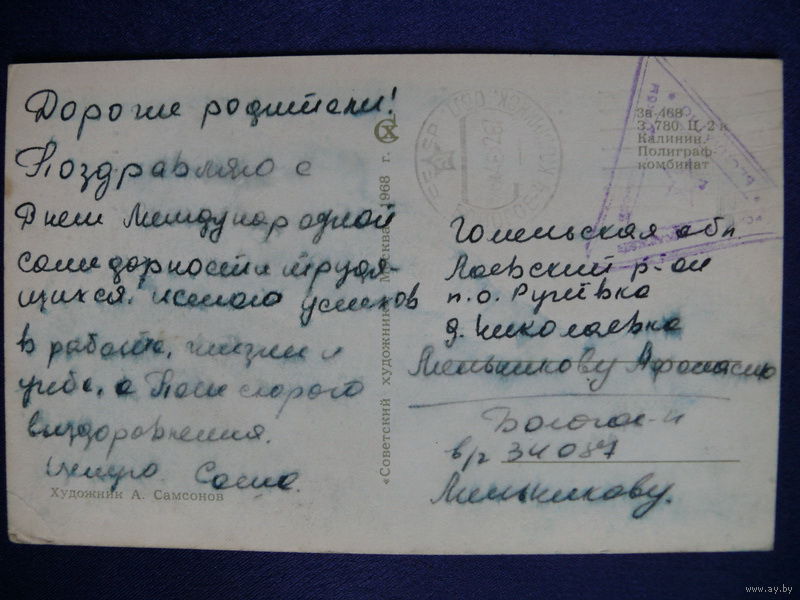 Дорогие родители!
Поздравляю с
Днем Международной
солидарности трудя-
щихся. Желаю успехов
в работе, жизни и
учебе, а Поле скорого
выздоровления.
Целую. Саша.
Художник А. Самсонов
«Советский художник» Москва 1968 г.
За 468
З. 780 Ц. 2 к
Калинин.
Полиграф-
комбинат
Гомельская обл
Лоевский р-он
п.о. Ручевка
д. Николаевка
Мельникову Афанасию
Бологое-4
в/ч 34087
Мельникову.
www.ay.by